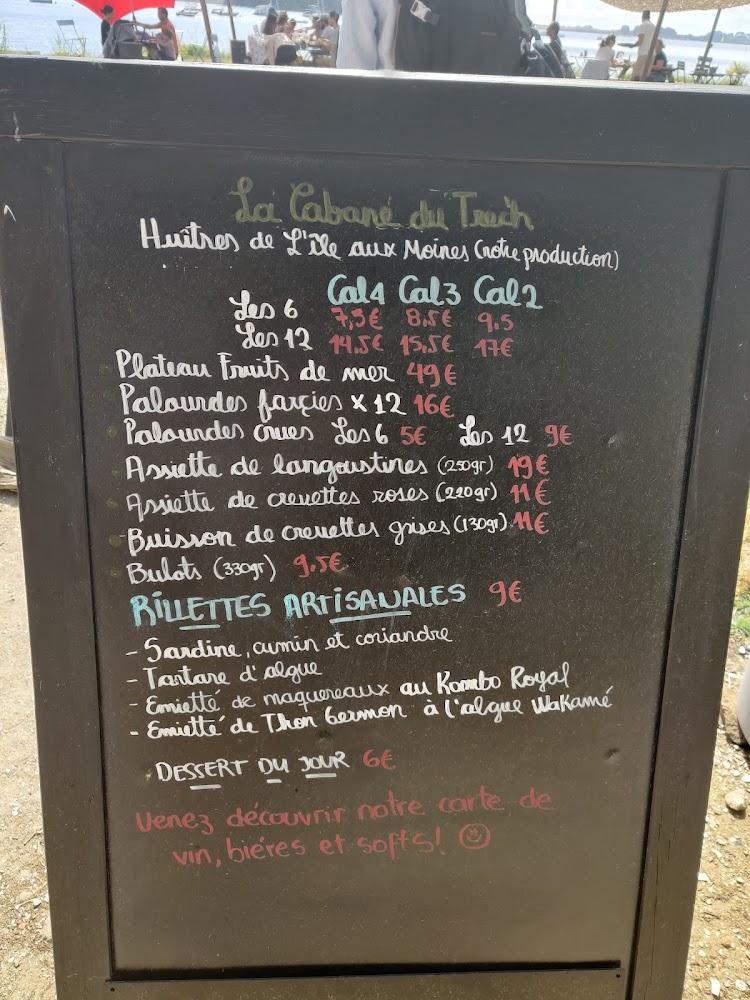 La Cabane du Trech
Huîtres de L'île aux Moines (notre production)
Cal4 Cal3 Cal2
Les 6 7,5€ 8,5€ 9.5
Les 12 14.5€ 15,5€ 17€
Plateau Fruits de mer 49€
Palourdes farçies x 12 16€
Palourdes crues Les 6 5€ Les 12 9€
Assiette de langoustines (250gr) 19€
Assiette de crevettes roses (220gr) 11€
Buisson de crevettes grises (130gr) 11€
Bulots (330gr) 9.5€
RILLETTES ARTISANALES 9€
- Sardine, cumin et coriandre
- Tartare d'algue
- Emietté de maquereaux au Kombo Royal
- Emietté de Thon Germon à l'algue Wakamé
DESSERT DU JOUR 6€
Venez découvrir notre carte de
vin, biéres et softs!